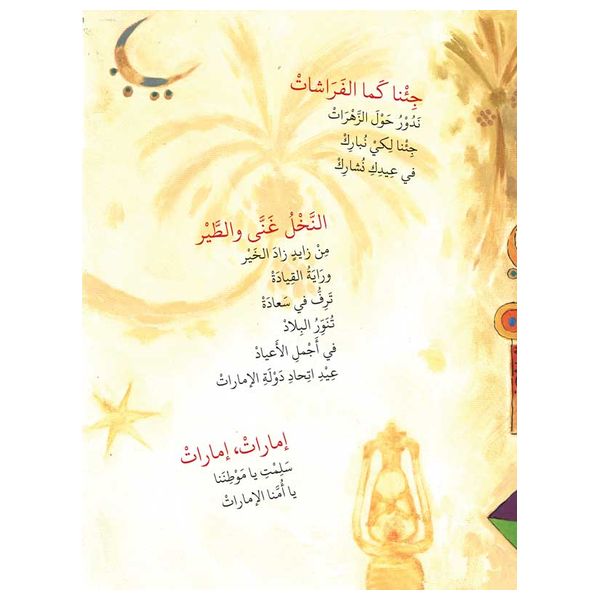 جِئْنا كَما الفَرَاشاتْ
نَدُوْرُ حَوْلَ الزَّهْرَاتْ
جِئْنا لِكَيْ نُبارِكْ
في عِيدِكِ نُشارِكْ
النَّخْلُ غَنَّى والطَّيْر
مِنْ زايِدٍ زادَ الخَيْر
ورَايَةُ القِيادَةْ
تَرِفُّ في سَعادَةْ
تُنَوِّرُ البِلادْ
في أَجْملِ الأَعيادْ
عِيْدِ اتِحادِ دَوْلَةِ الإماراتْ
إماراتْ، إماراتْ
سَلِمْتِ يا مَوْطِنَنا
يا أُمَّنا الإماراتْ